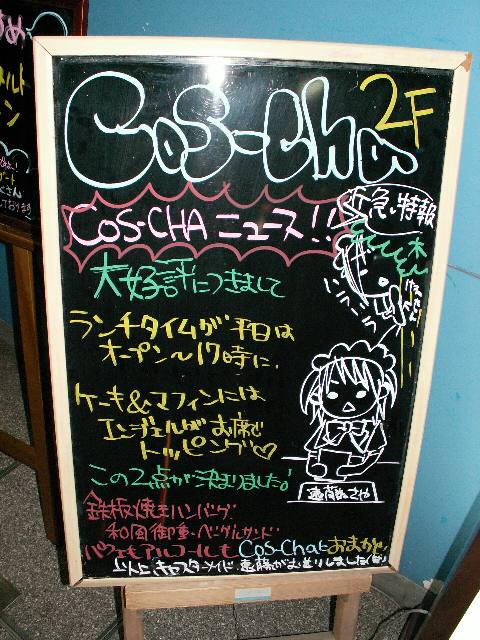 Cos-Cha
2F
COS-CHA ニュース!!
緊急特報
大好評につきまして
ランチタイムが平日は
オープン〜17時に、
ケーキ&マフィンには
エンジェルがお席で
トッピング♡
この2点が決まりました!
遠藤さや
鉄板焼きハンバーグ
和風御重・ベーグルサンド
パフェもアルコールも Cos-Chaにおまかせ!
以上 キャスターメイド 遠藤がお送りしました